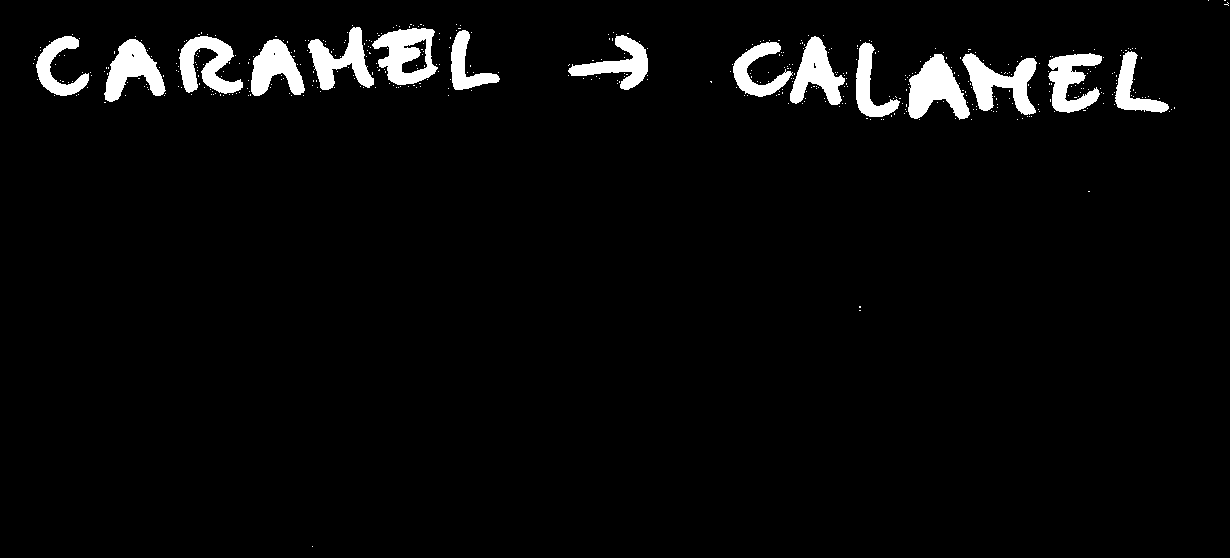 CARAMEL → CALAMEL